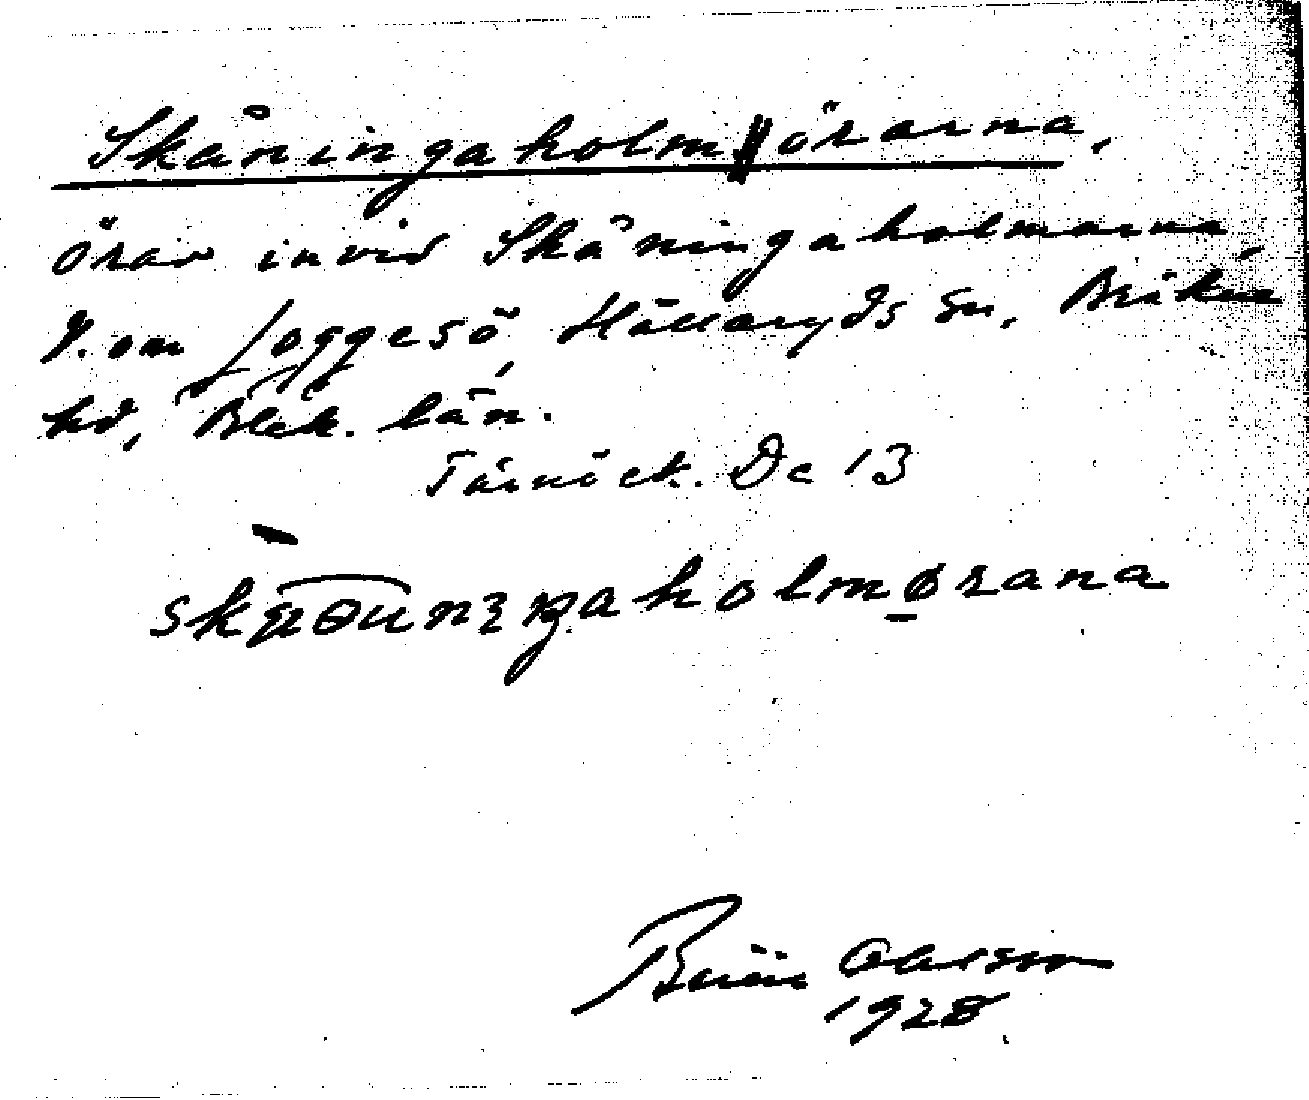 Skåningaholmörarna.
Örar invid Skåningaholmarna,
V. om Joggesö, Hällaryds sn, Bräkne
hd, Blek. län.
Tärnö ek. De 13
holmørana
Ohlsson
1928.